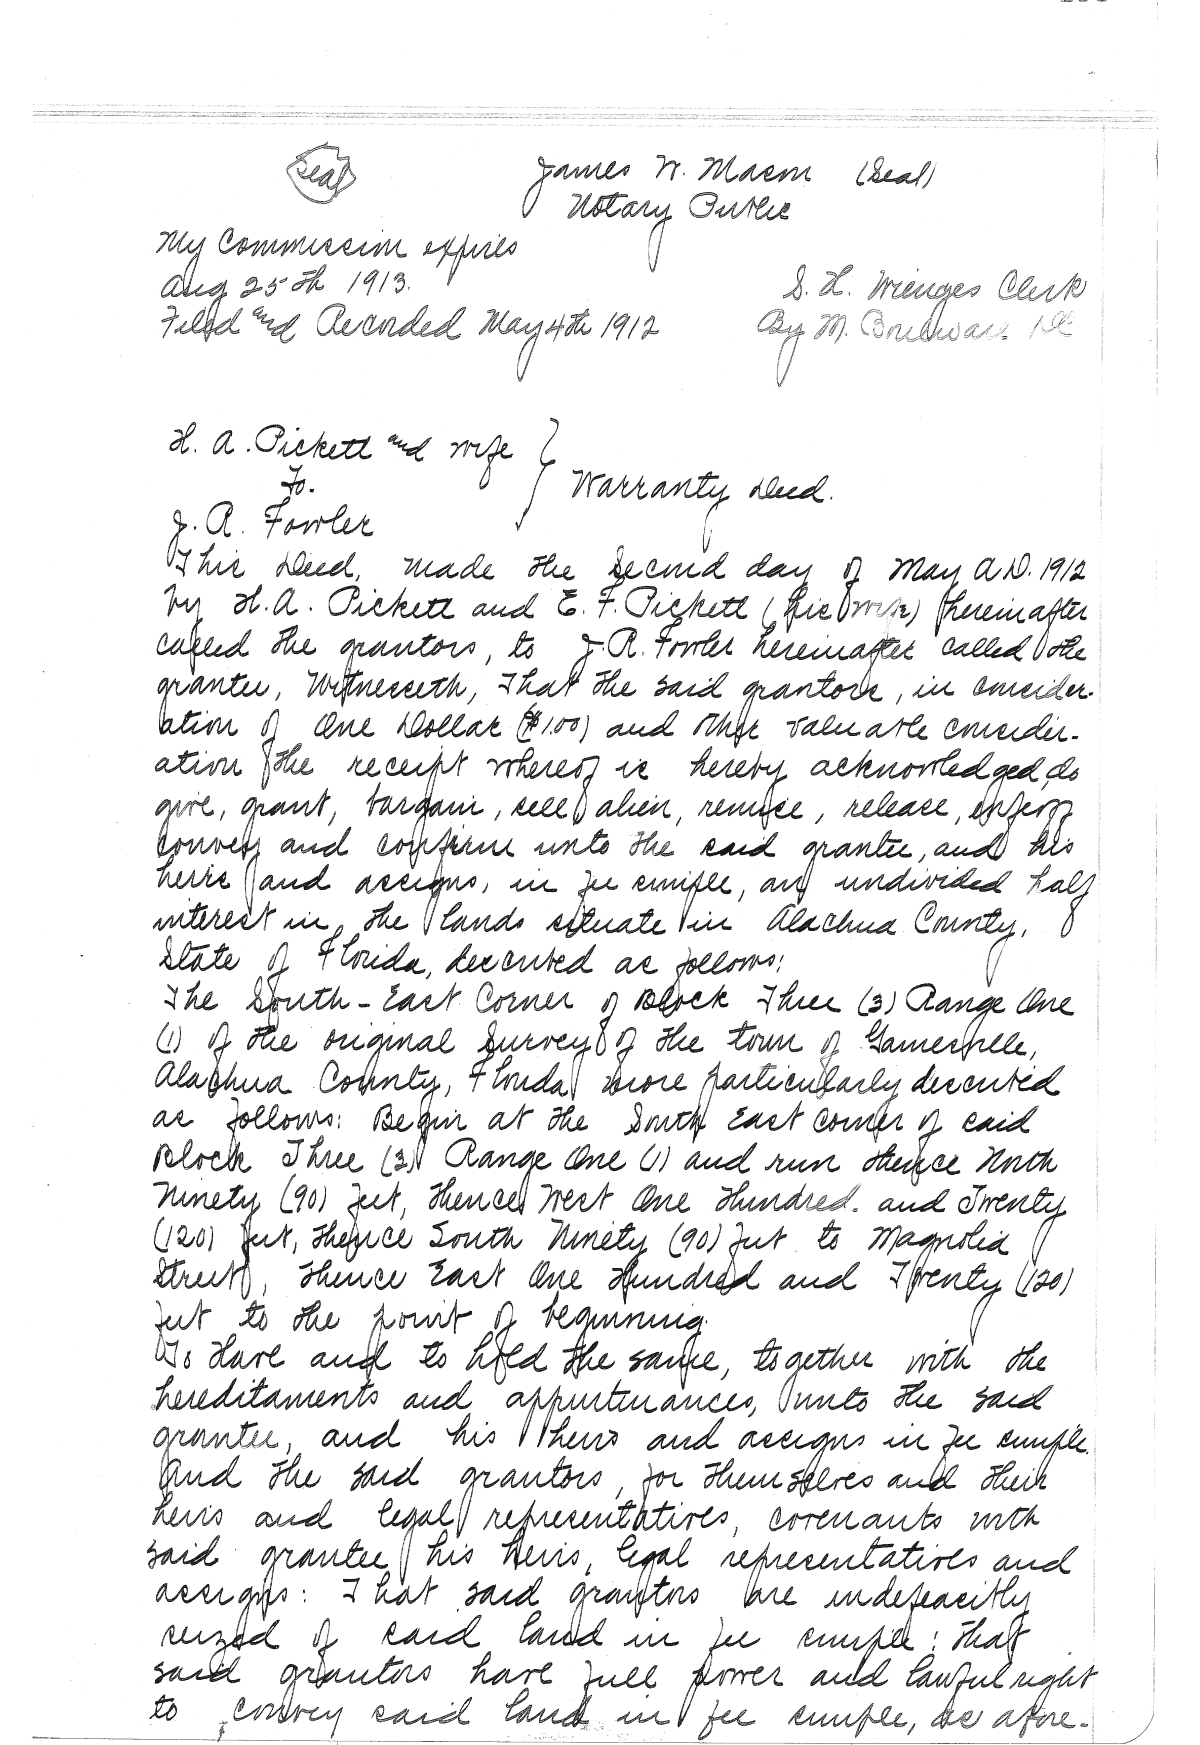 Seal
James W. Mason (Seal)
Notary Public
My Commission expires
Aug 25th 1913.
Filed and Recorded May 4th 1912
S. H. Wienges Clerk
By M.
H. A. Pickett and wife
To.
J. R. Fowler
Warranty Deed.
This Deed, made the Second day of May A.D. 1912
by H. A. Pickett and E. F. Pickett (his wife) hereinafter
called the grantors, to J. R. Fowler hereinafter called the
grantee, Witnesseth, That the said grantors, in consider-
ation of One Dollar ($1.00) and other valuable consider-
ation the receipt whereof is hereby acknowledged, do
give, grant, bargain, sell, alien, remise, release, enfeoff
convey and confirm unto the said grantee, and his
heirs and assigns, in fee simple, an undivided half
interest in the lands situate in Alachua County,
State of Florida, described as follows:
The South-East Corner of Block Three (3) Range One
(1) of the original Survey of the town of Gainesville,
Alachua County, Florida more particularly described
as follows: Begin at the South East Corner of said
Block Three (3) Range One (1) and run thence North
Ninety (90) feet, thence West One Hundred and Twenty
(120) feet, thence South Ninety (90) feet to Magnolia
Street, thence East One Hundred and Twenty (120)
feet to the point of beginning.
To Have and to hold the same, together with the
hereditaments and appurtenances, unto the said
grantee, and his heirs and assigns in fee simple.
And the said grantors, for themselves and their
heirs and legal representatives, covenants with
said grantee his heirs, legal representatives and
assigns: That said grantors are indefeasibly
seized of said land in fee simple: that
said grantors have full power and lawful right
to convey said land in fee simple, as afore-